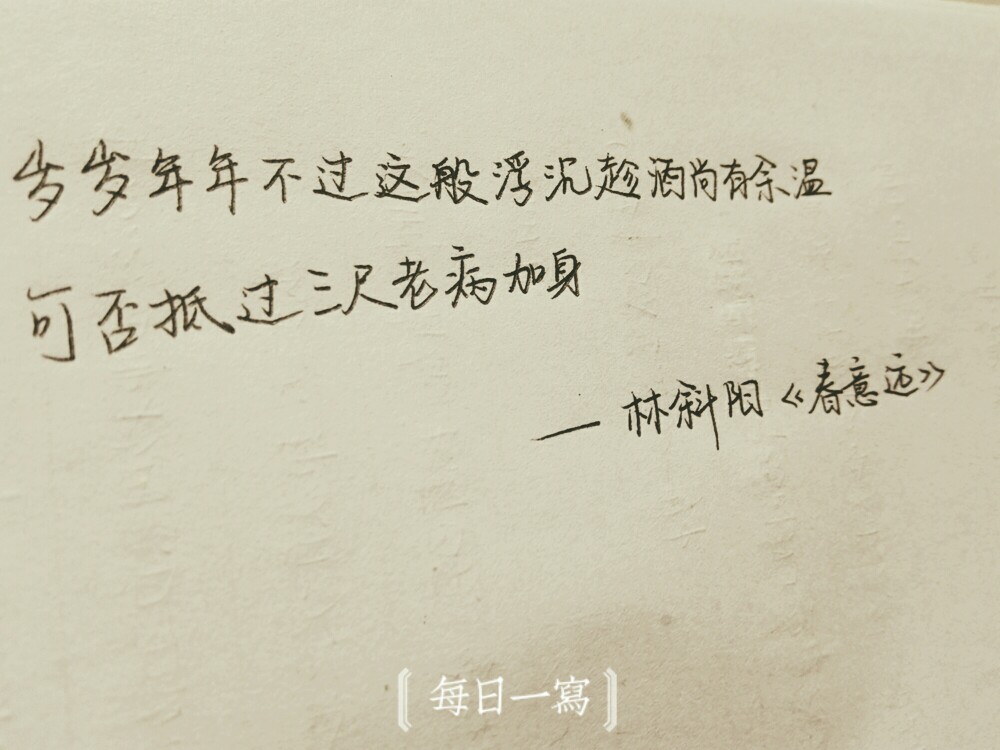 岁岁年年不过这般浮沉趁酒尚有余温
可否抵过三尺老病加身
— 林斜阳《春意远》
〖每日一寫〗